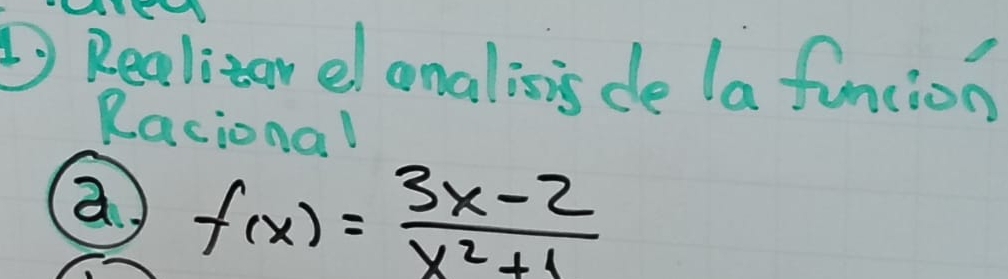 1.) Realizar el analisis de la función
Racional
a. f(x) = 3x-2 / x²+1